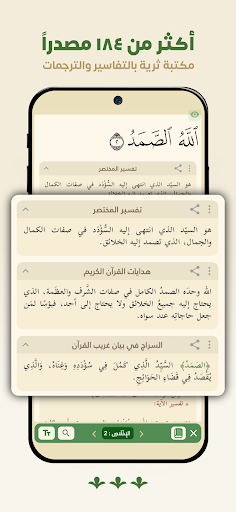 أكثر من ١٨٤ مصدراً
مكتبة ثرية بالتفاسير والترجمات
ٱللَّهُ ٱلصَّمَدُ ٢
تفسير المختصر
هو السيّد الذي انتهى إليه السُّؤْدَد في صفات الكمال
تفسير المختصر
هو السيّد الذي انتهى إليه السُّؤْدَد في صفات الكمال
والجمال، الذي تصمد إليه الخلائق.
هدايات القرآن الكريم
الله وحدَه الصمدُ الكامل في صفات الشَّرف والعظَمة، الذي
يحتاج إليه جميعُ الخلائق ولا يحتاج إلى أحد، فبؤسًا لمَن
جعل حاجاتِه عند سواه.
السراج في بيان غريب القرآن
﴿الصَّمَدُ﴾ السَّيِّدُ الَّذِي كَمُلَ فِي سُؤْدَدِهِ وَغِنَاهُ، وَالَّذِي
يُقْصَدُ فِي قَضَاءِ الحَوَائِجِ.
تفسير الآية:
الإخلاص : 2
TT